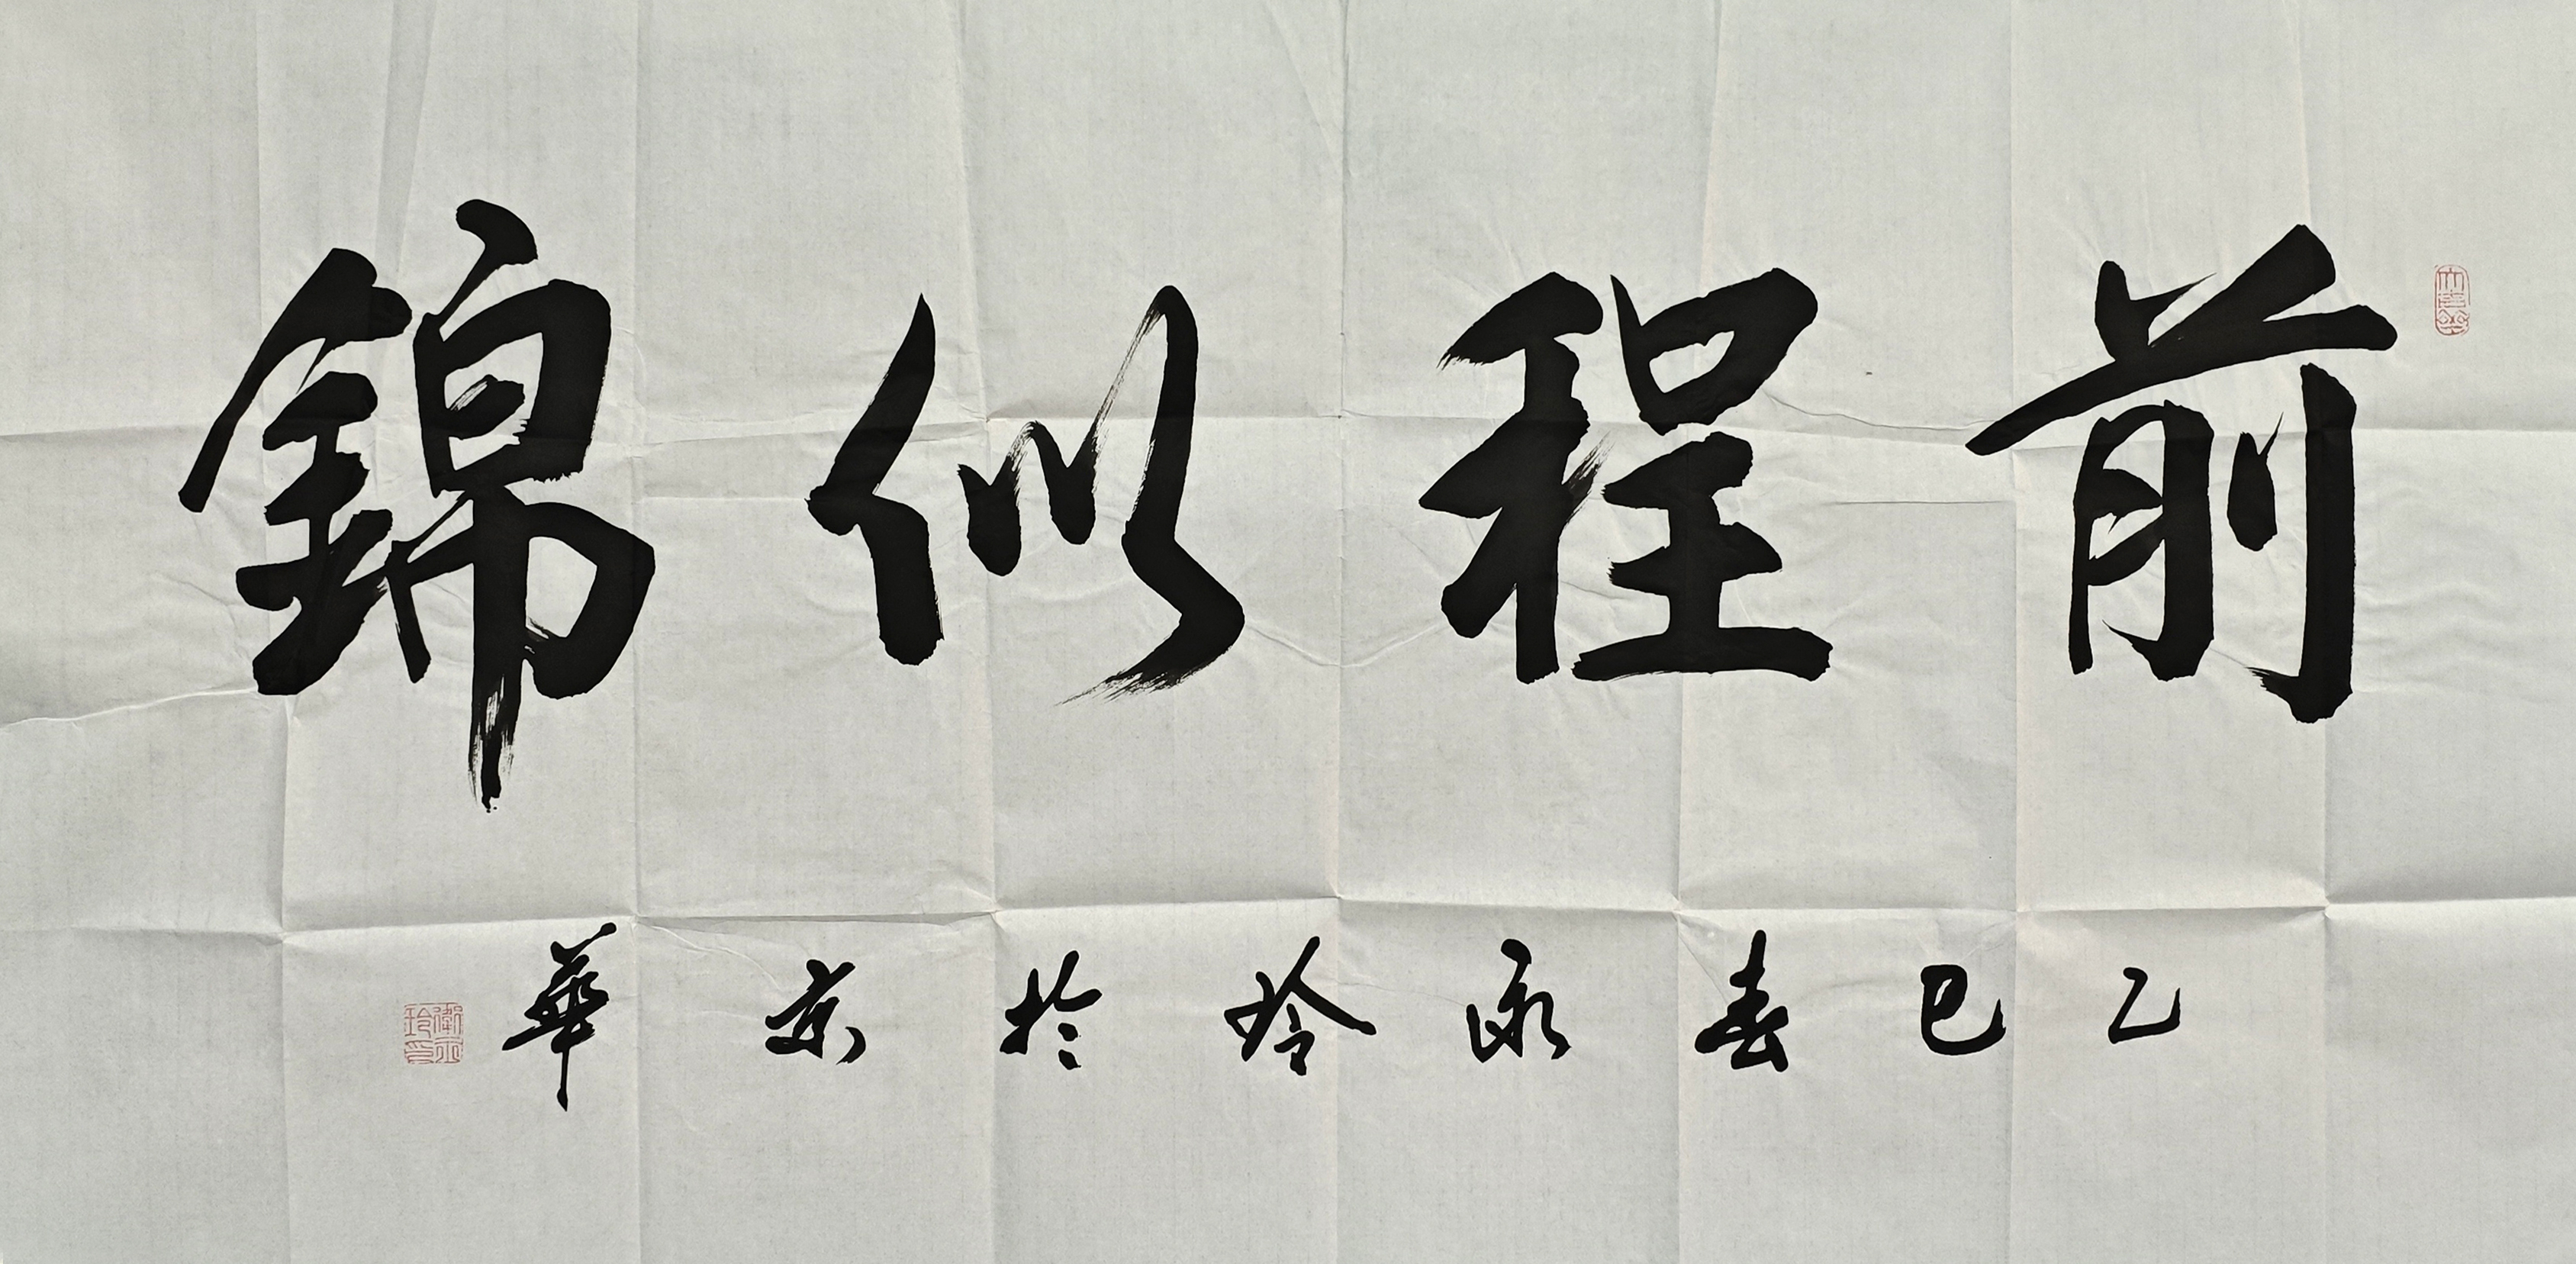 前程似錦
乙巳春永玲於京華